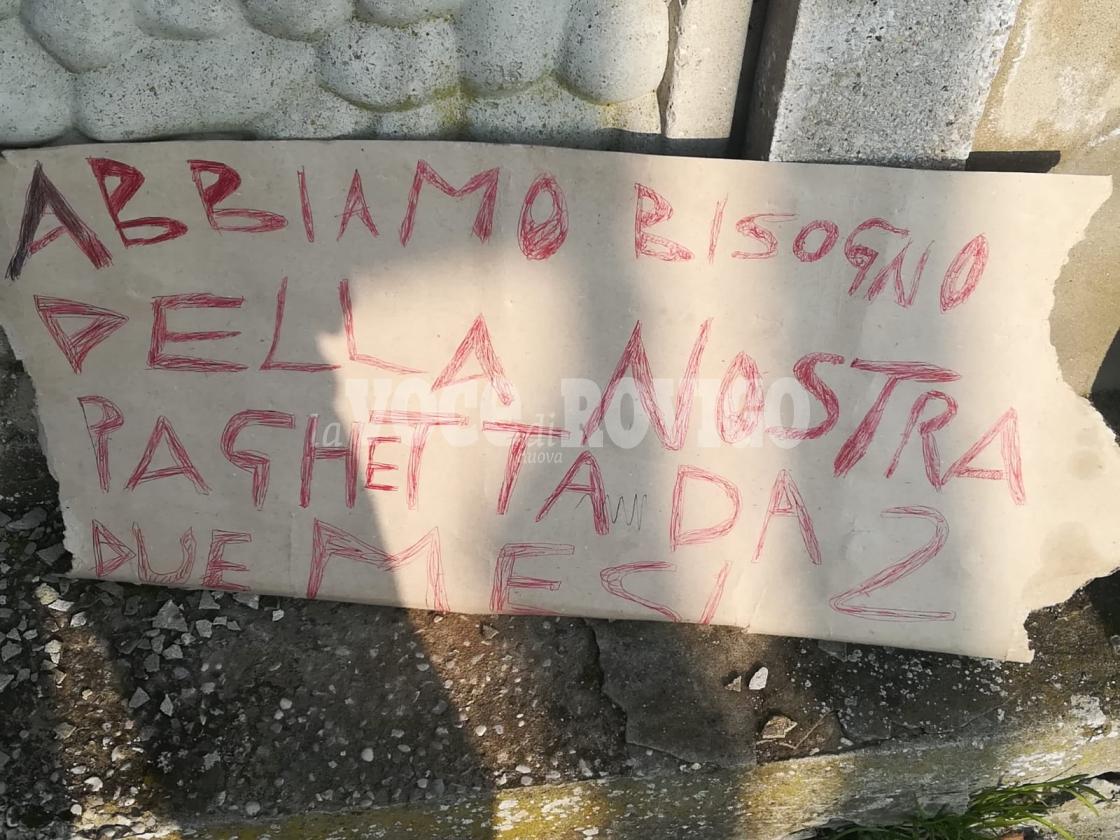 ABBIAMO BISOGNO
DELLA NOSTRA
PAGHETTA DA 2
DUE MESI
la VOCE di ROVIGO
nuova